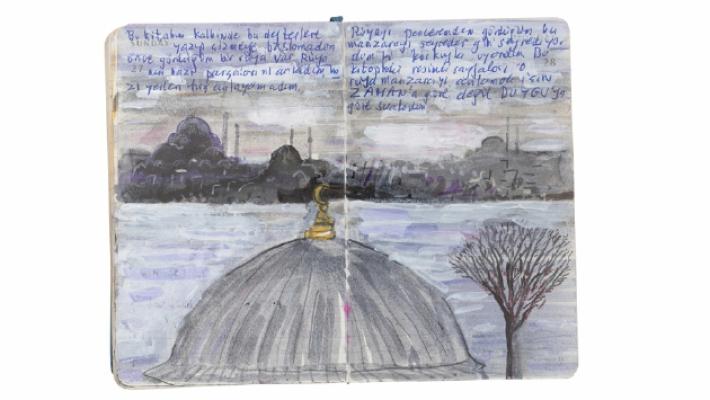 Bu kitabın kalbinde bu defterlere
SUNDAY
yazıp çizmeye başlamadan
önce gördüğüm bir rüya var. Rüya
nın bazı parçalarını anladım ba
zı yerlerini hiç anlayamadım.
Rüyayı pencereden gördüğüm bu
manzarayı seyreder gibi seyrediyor
dum ki korkuyla uyandım. Bu
28
kitaptaki resimli sayfaları o
rüya manzarayı için
ZAMAN'a göre değil DUYGU'ya
göre sıraladım.